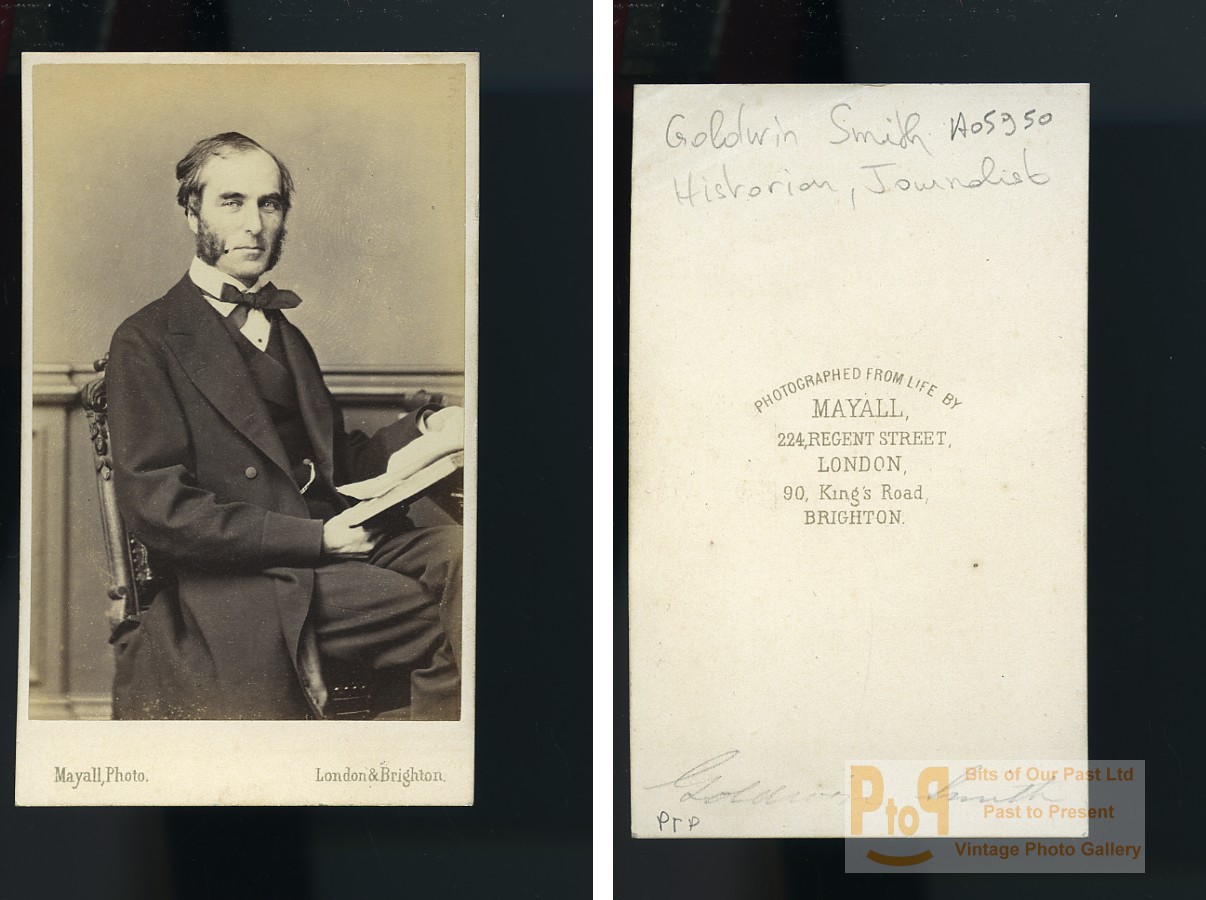 Mayall, Photo.
London & Brighton.
Goldwin Smith A05950
Historian, Journalist
PHOTOGRAPHED FROM LIFE BY
MAYALL,
224, REGENT STREET,
LONDON,
90, King's Road,
BRIGHTON.
Goldwin Smith
PTP
PtoP
Bits of Our Past Ltd
Past to Present
Vintage Photo Gallery